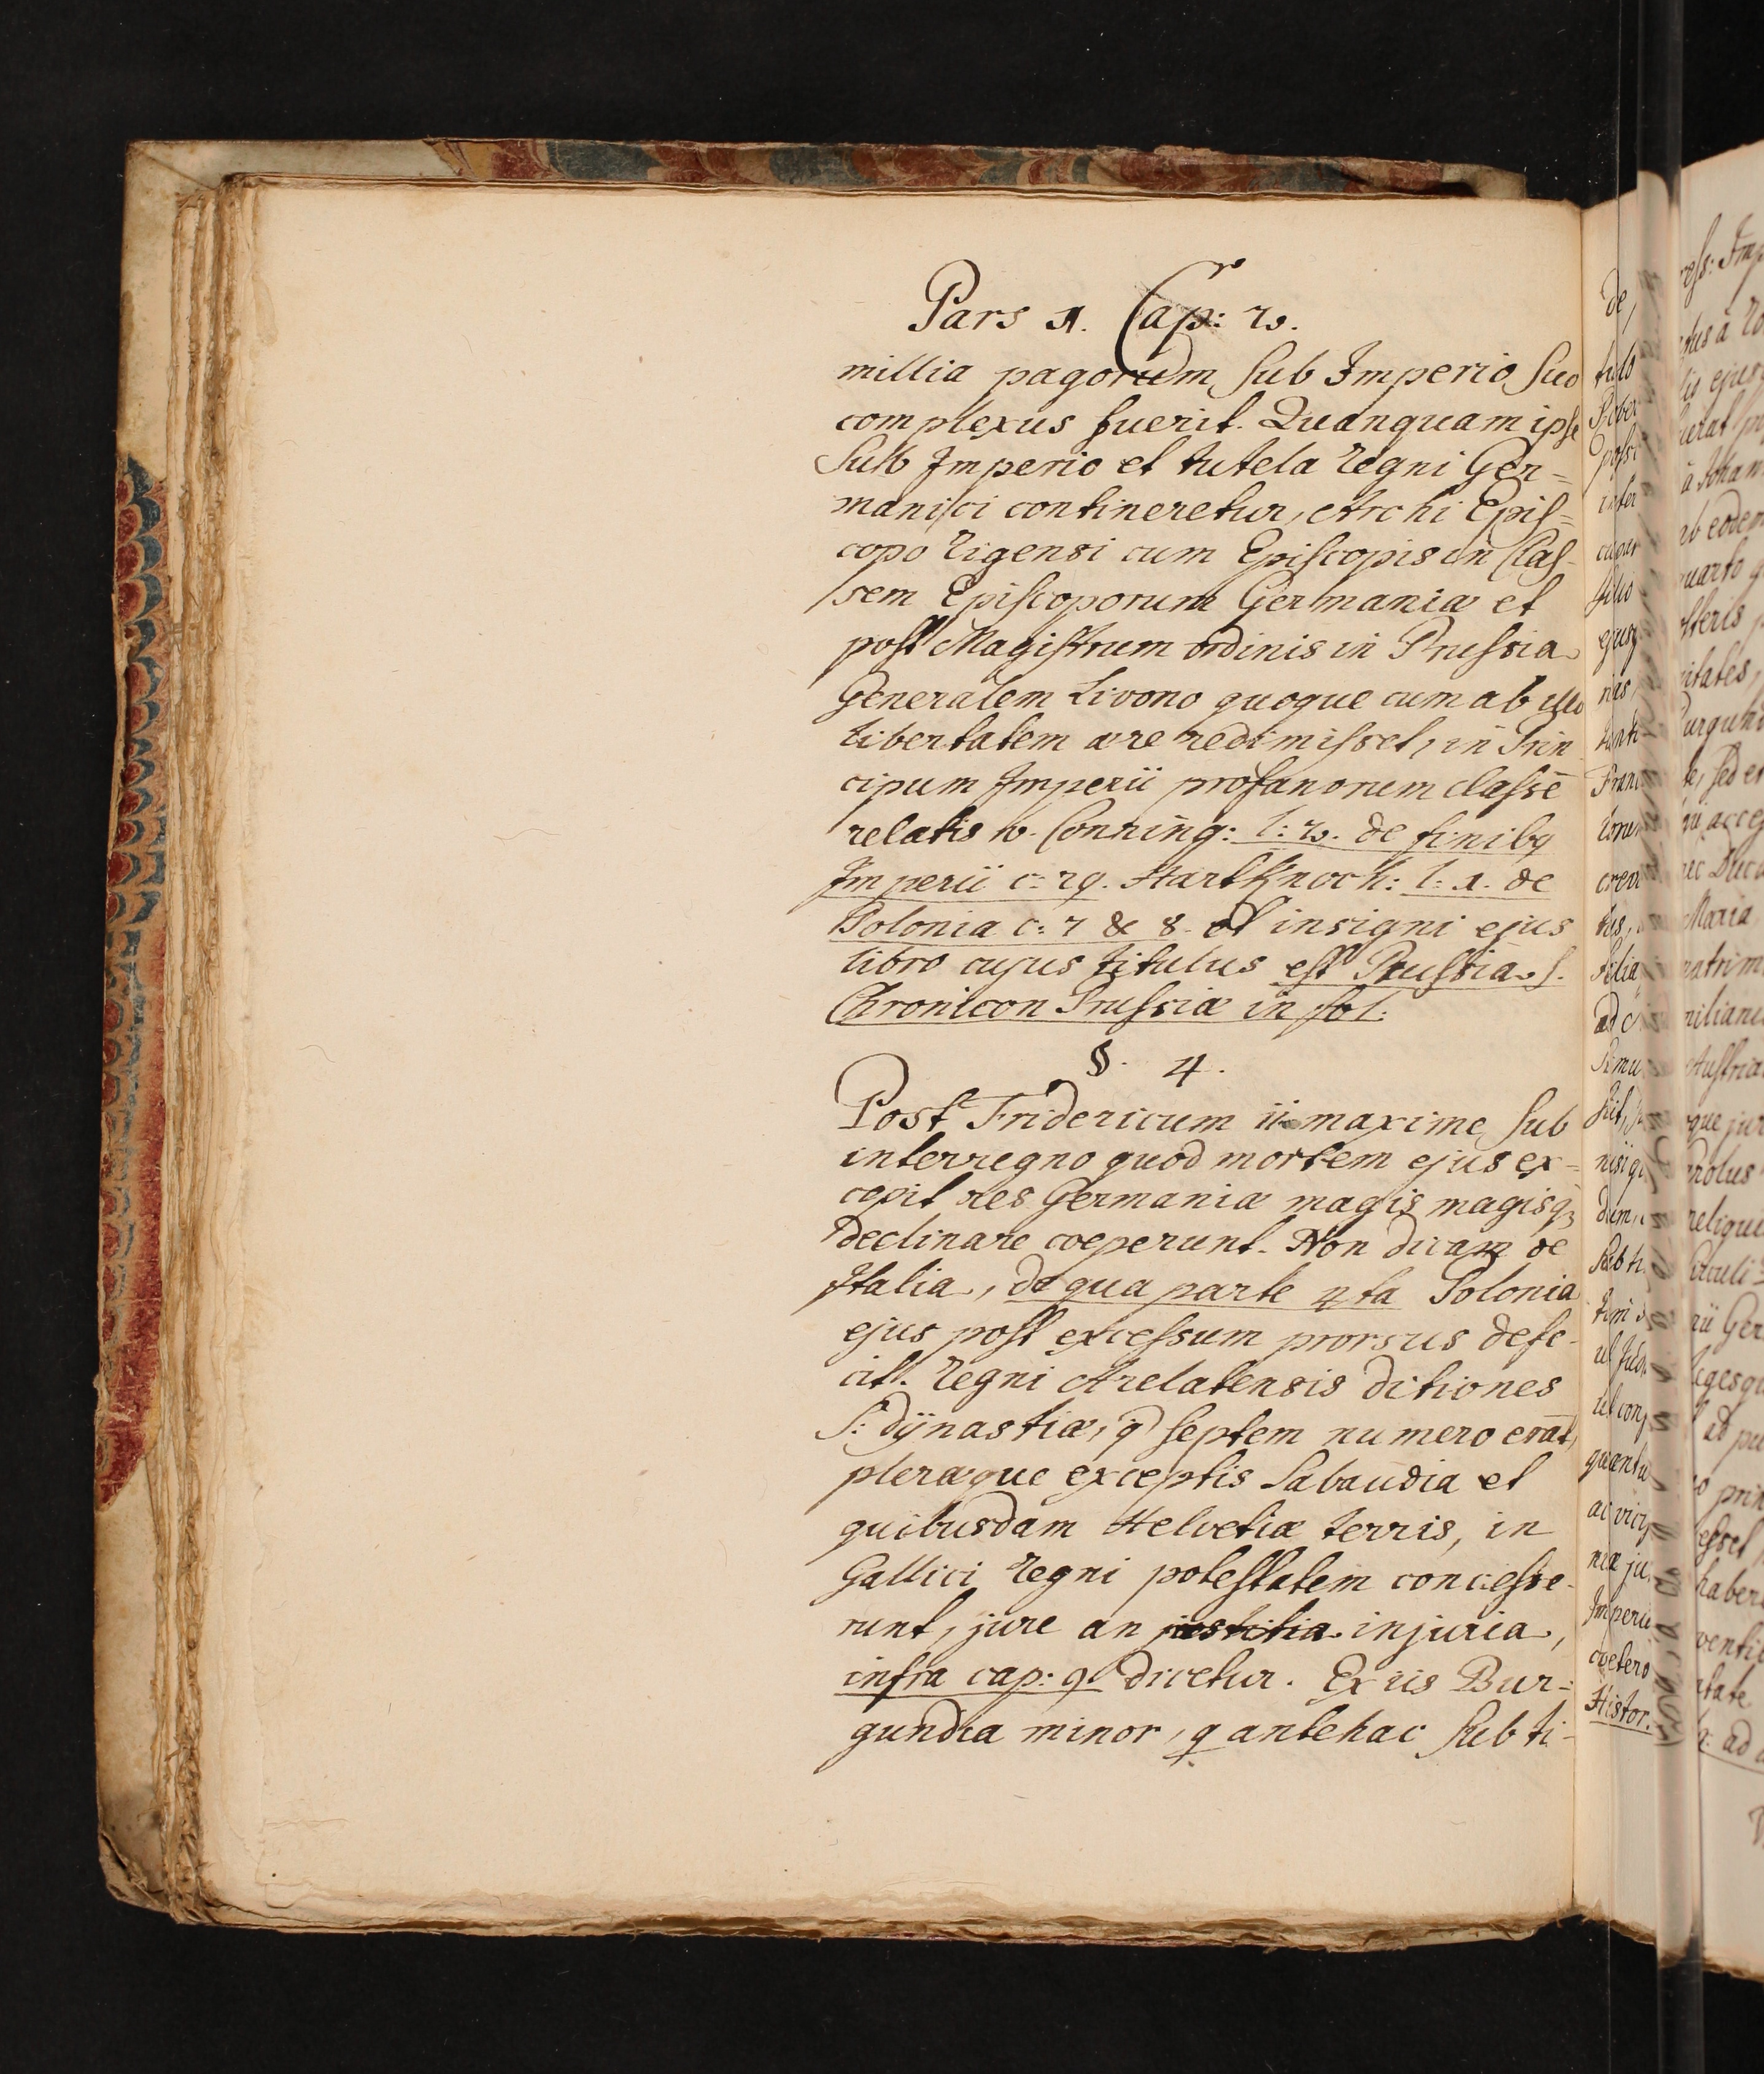 Pars 1. Cap: 2.
millia pagorum sub Imperio suo
complexus fuerit. Quanquam ipse
sub Imperio et tutela regni Ger=
manici contineretur, Archi Epis=
copo rigensi cum Episcopis in Clas-
sem Episcoporum Germaniæ et
post Magistrum ordinis in Prussia
Generalem Livono quoque cum ab illo
libertatem ære redimisset, in Prin
cipum Imperii profanorum classē
relatis v. Conring: l: 2. de finibq
Imperii c: 29. Hartknoch: l: 1. de
Polonia c: 7 & 8. et insigni ejus
libro cujus titulus est Prussia s.
Chronicon Prussiæ in fol:
§. 4.
Post Fridericum ii maxime sub
interregno quod mortem ejus ex=
cepit res Germaniæ magis magisq3
declinare coeperunt. Non dicam de
Italia, de qua parte 4ta Polonia
ejus post excessum prorsus defe-
cit. regni Arelatensis ditiones
s: dÿnastiæ, q̄ septem numero erāt,
pleræque exceptis Sabaudia et
quibusdam Helvetiæ terris, in
Gallici regni potestatem concesse-
runt, jure an justitia injuria,
infra cap: 9. dicetur. Ex iis Bur=
gundia minor, q antehac sub ti-